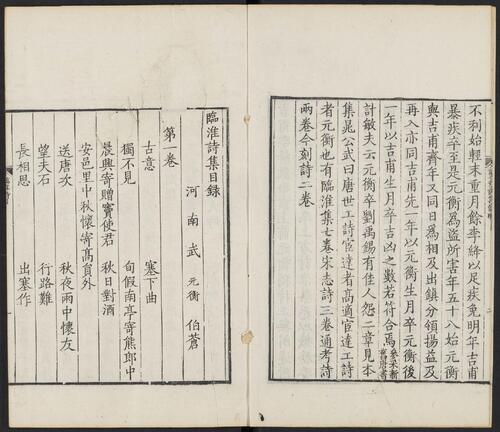 不利始輕末重月餘李絳以足疾免明年吉甫
暴疾卒至是元衡為盜所害年五十八始元衡
與吉甫齊年又同日為相及出鎮分領揚益及
再入亦同吉甫先一年以元衡生月卒元衡後
一年以吉甫生月卒吉凶之數若符合焉參采新舊唐書
計敏夫云元衡卒劉禹錫有佳人怨二章見本
集晁公武曰唐世工詩宦達者高適宦達工詩
者元衡也有臨淮集七卷宋志詩三卷通考詩
兩卷今刻詩二卷
臨淮詩集目錄
河南武元衡伯蒼
第一卷
古意 塞下曲
獨不見 旬假南亭寄熊郎中
晨興寄贈竇使君 秋日對酒
安邑里中秋懷寄高員外
送唐次 秋夜雨中懷友
望夫石 行路難
長相思 出塞作